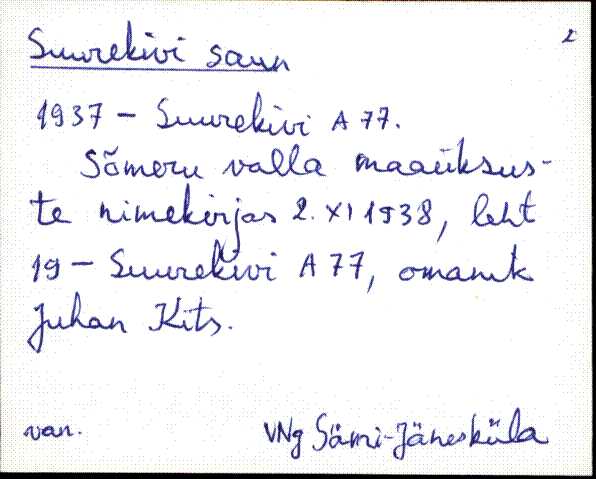 2
Suurekivi saun
1937 – Suurekivi A 77.
Sõmeru valla maaüksus-
te nimekirjas 2. XI 1938, leht
19 – Suurekivi A 77, omanik
Juhan Kits.
van. VNg Sämi-Jänesküla